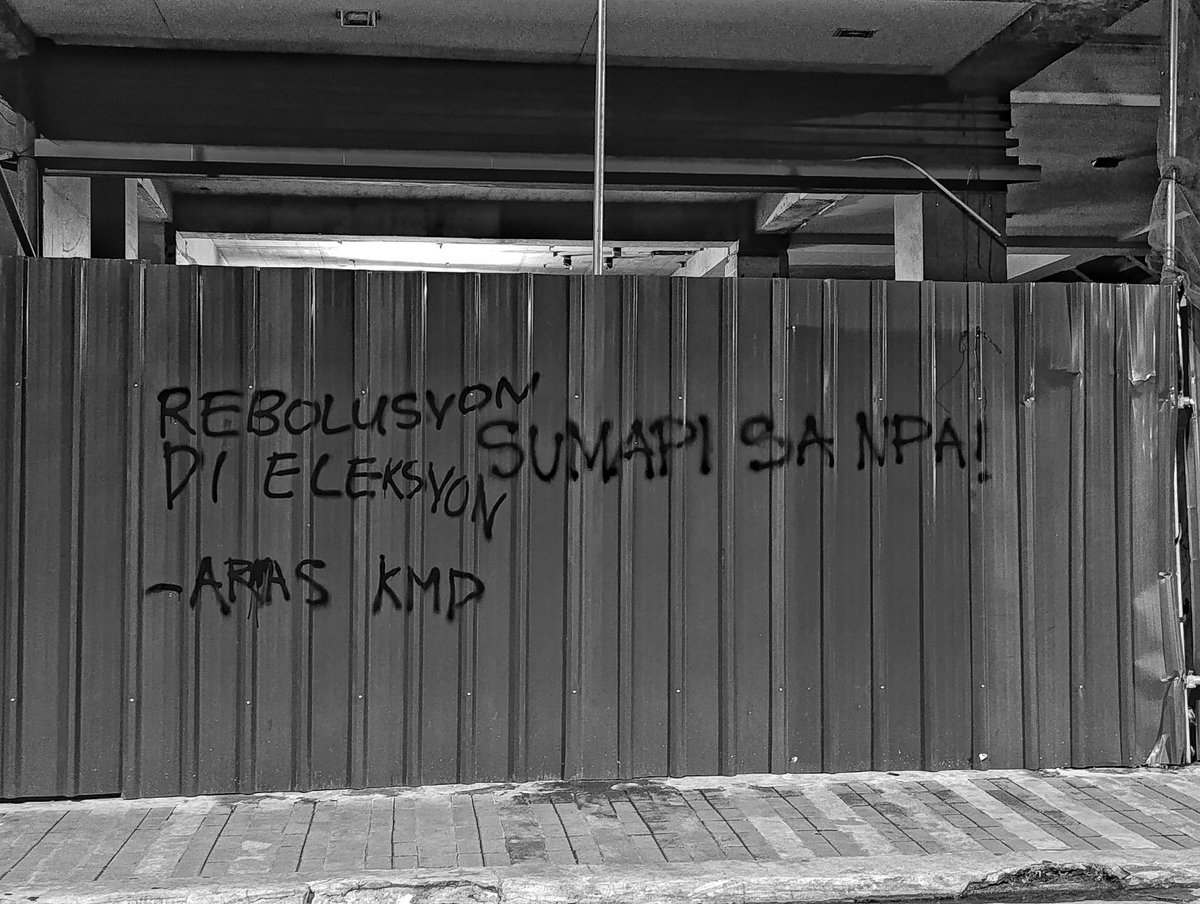 REBOLUSYON
DI ELEKSYON
SUMAPI SA NPA!
-ARMAS KMD